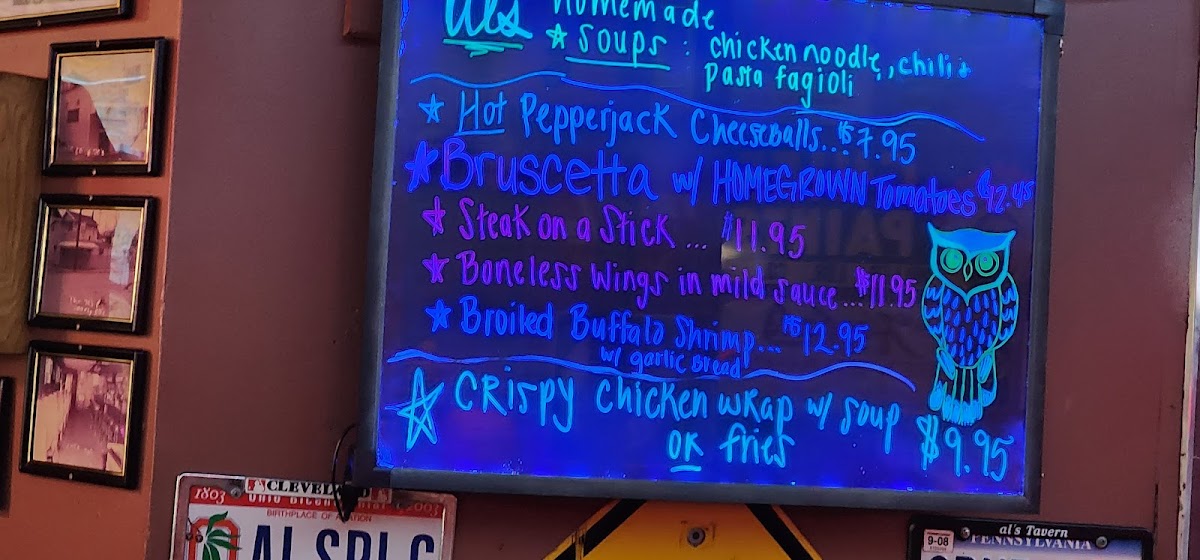 als homemade
☆ soups : chicken noodle, chili +
pasta fagioli
☆ Hot Pepperjack Cheeseballs...$7.95
☆ Bruscetta w/ HOMEGROWN Tomatoes $12.45
☆ Steak on a Stick ... $11.95
☆ Boneless wings in mild sauce...$11.95
☆ Broiled Buffalo Shrimp... $12.95
w/ garlic Bread
☆ CRispy chicken wrap w/ soup
OR fries $9.95
CLEVEL
1803 OHIO BICENTENNIAL 2003
BIRTHPLACE OF AVIATION
ALSPLC
al's Tavern
9-08 PENNSYLVANIA